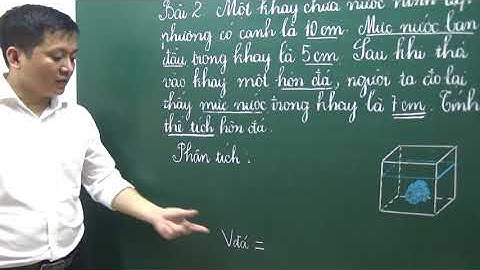 Bài 2. Một khay chứa nước hình lập
phương có cạnh là 10 cm. Mực nước ban
đầu trong khay là 5 cm. Sau khi thả
vào khay một hòn đá, người ta đo lại
thấy mực nước trong khay là 7 cm. Tính
thể tích hòn đá.
Phân tích:
Vđá =